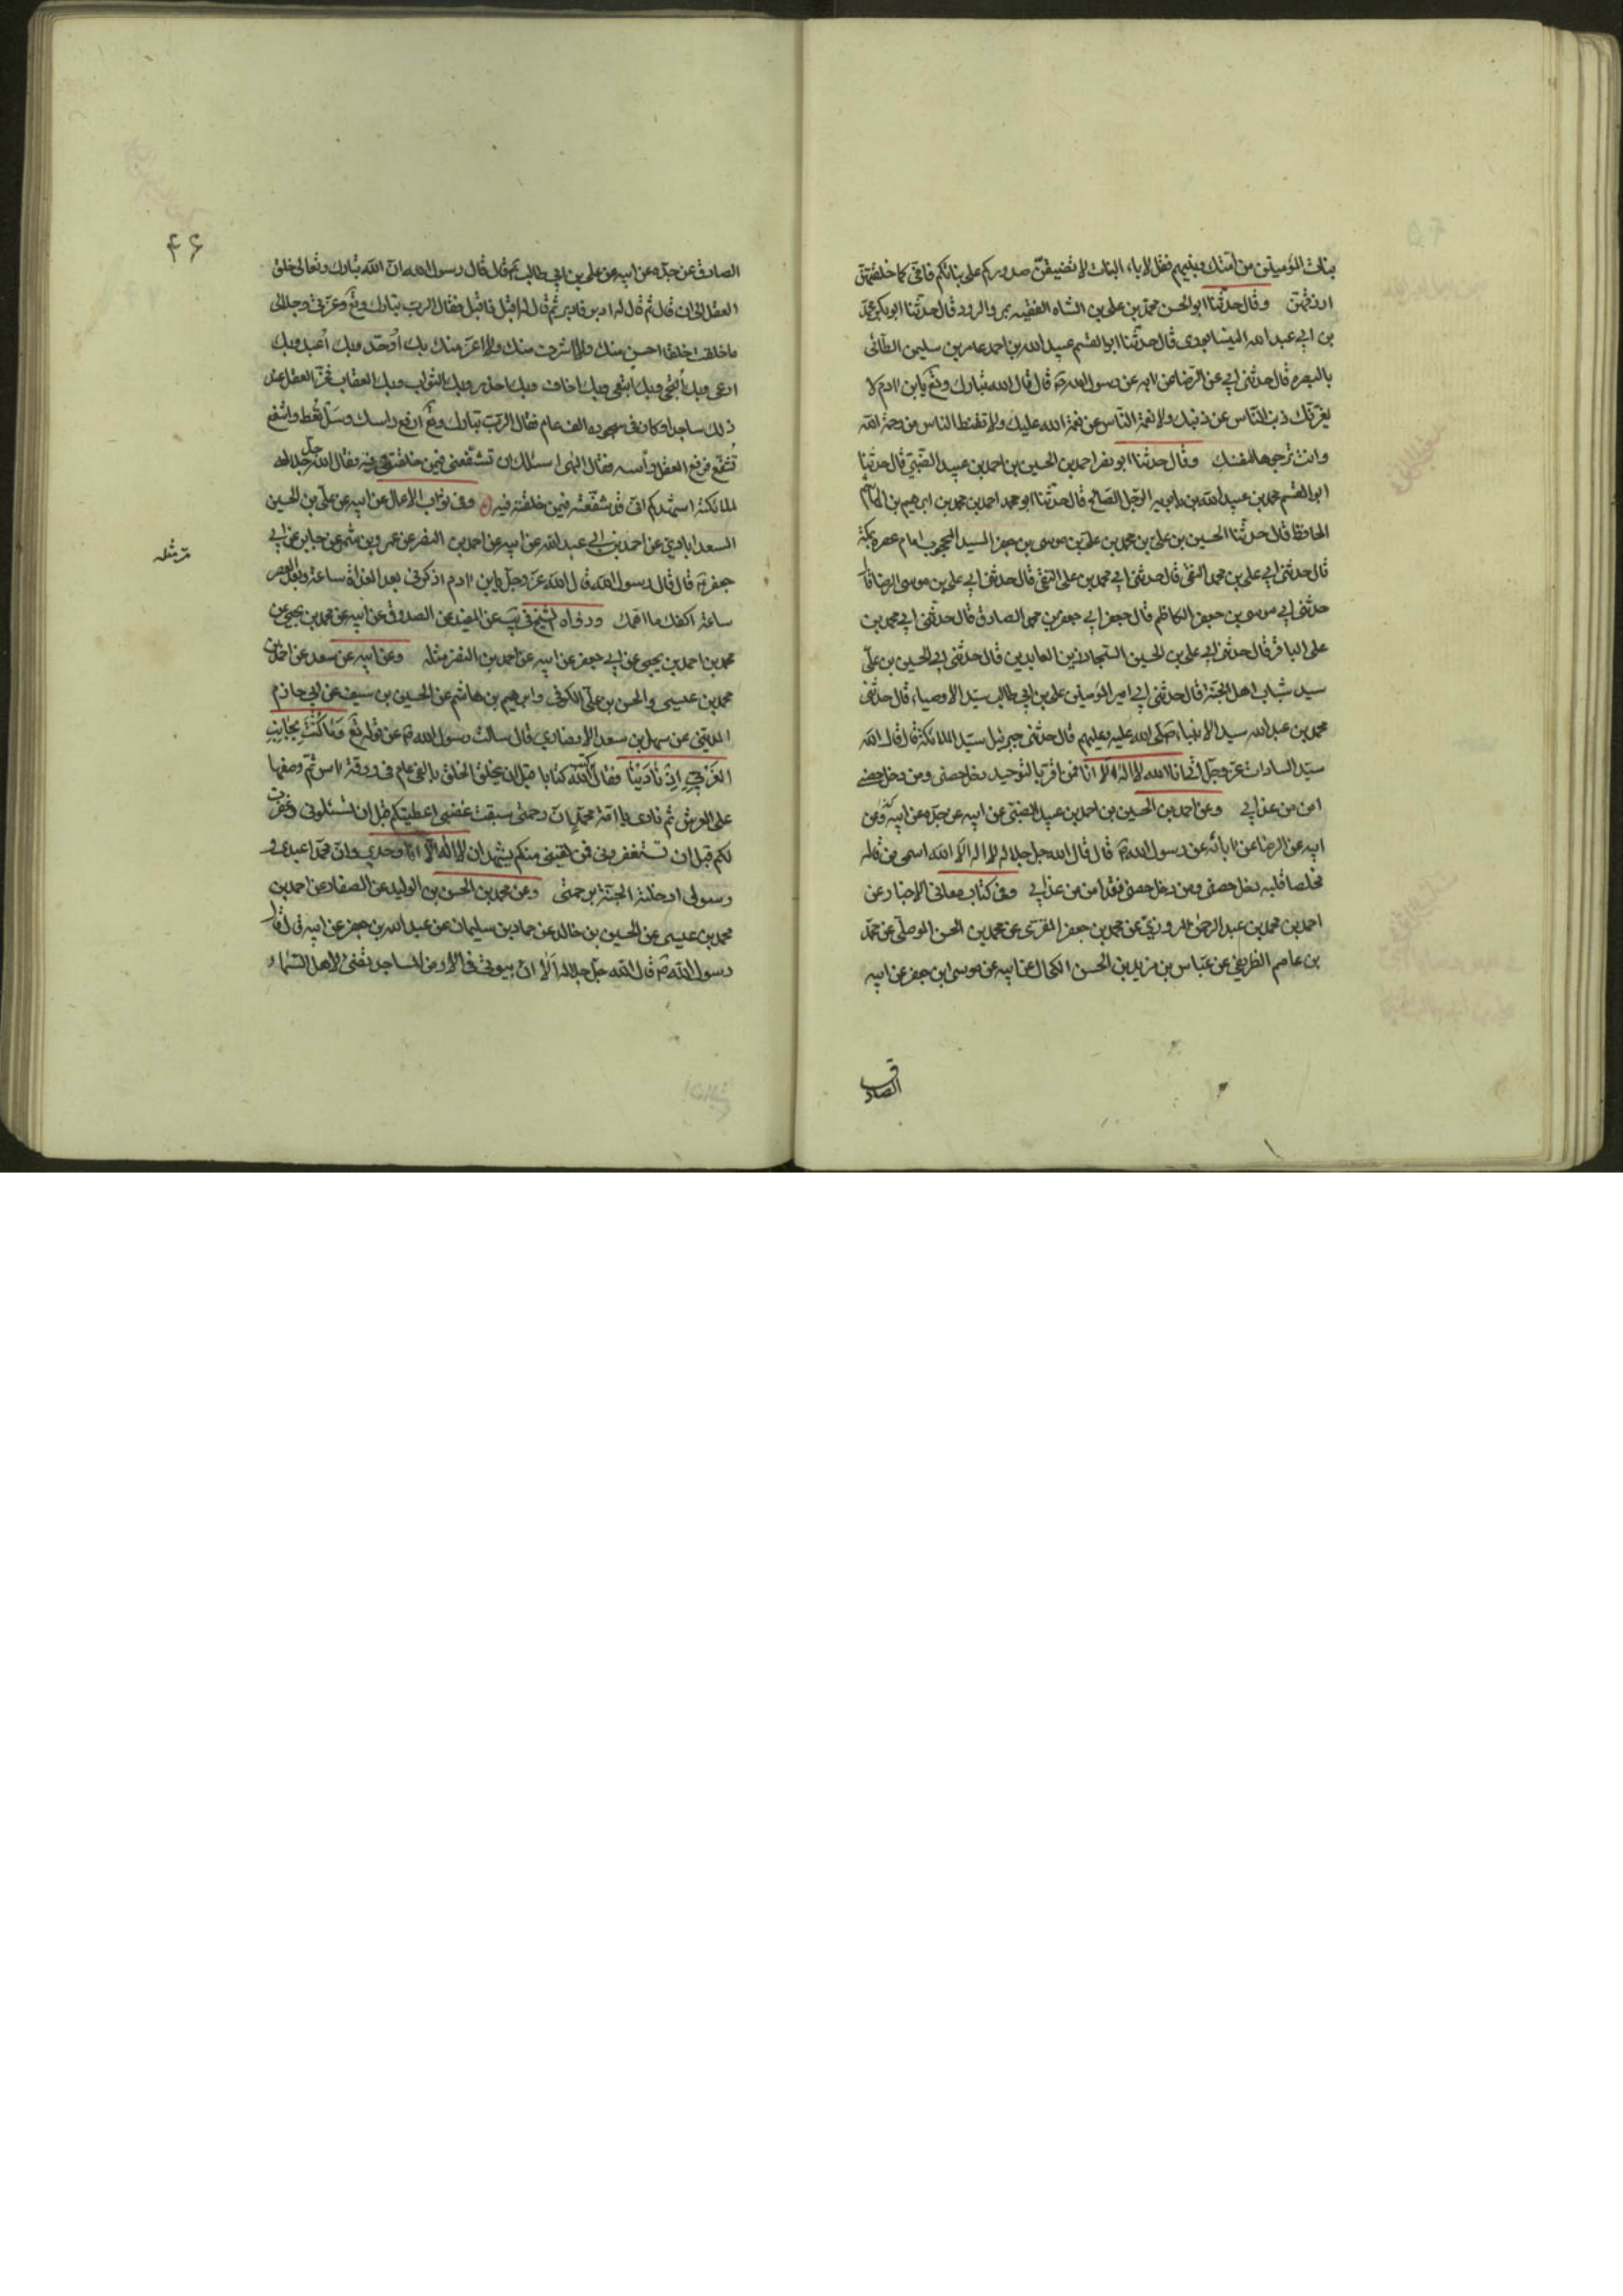 بنات المؤمنين من امتك وبنيهم فقل لاباء البنات لا تضيقن صدوركم على بناتكم فاني كما خلقتهن
ارزقهن وقال حدثنا ابو الحسن محمد بن علي بن الشاه الفقيه بمرو الرود قال حدثنا ابو بكر محمد
بن ابي عبد الله النيسابوري قال حدثنا ابو القسم عبيد الله بن احمد عامر بن سليمن الطائي
بالبصره قال حدثني ابي عن الرضا عن ابائه عن رسول الله ص قال قال الله تبارك وتع يابن ادم لا
يغرنك ذنب الناس عن ذنبك ولا نعمة الناس عن نعمة الله عليك ولا تقنط الناس من رحمة الله
وانت ترجوها لنفسك وقال حدثنا ابو نصر احمد بن الحسين بن احمد بن عبيد الضبي قال حدثنا
ابو القسم محمد بن عبيد الله بن بابويه الرجل الصالح قال حدثنا ابو محمد احمد بن محمد بن ابرهيم بن هاشم
الحافظ قال حدثنا الحسين بن علي بن محمد بن علي بن موسى بن جعفر السيد المحجوب امام عصره بمكة
قال حدثني ابي علي بن محمد النقي قال حدثني ابي محمد بن علي التقي قال حدثني ابي علي بن موسى الرضا قال
حدثني ابي موسى بن جعفر الكاظم قال حدثني ابي جعفر بن محمد الصادق قال حدثني ابي محمد بن
علي الباقر قال حدثني ابي علي بن الحسين السجاد زين العابدين قال حدثني ابي الحسين بن علي
سيد شباب اهل الجنة قال حدثني ابي امير المؤمنين علي بن ابي طالب سيد الاوصياء قال حدثني
محمد بن عبد الله سيد الانبياء صلى الله عليه وعليهم قال حدثني جبرئيل سيد الملائكة قال قال الله
سيد السادات عز وجل اني انا الله لا اله الا انا فمن اقر بالتوحيد دخل حصني ومن دخل حصني
امن من عذابي وعن احمد بن الحسين بن احمد بن عبيد الضبي عن ابيه عن جده عن ابيه وعن
ابيه عن الرضا عن ابائه عن رسول الله ص قال قال الله جل جلاله لا اله الا الله اسمي من قاله
مخلصا قلبه دخل حصني ومن دخل حصني فقد امن من عذابي وفي كتاب معاني الاخبار عن
احمد بن محمد بن عبد الرحمن المروزي عن محمد بن جعفر المقري عن محمد بن الحسن الموصلي عن محمد
بن عاصم الطريفي عن عباس بن يزيد بن الحسن الكحال عن ابيه عن موسى بن جعفر عن ابيه
الصادق
۴۶
الصادق عن جده عن ابيه عن علي بن ابي طالب ع قال قال رسول الله ان الله تبارك وتعالى خلق
العقل الى ان قال ثم قال له ادبر فادبر ثم قال له اقبل فاقبل فقال الرب تبارك وتع وعزتي وجلالي
ما خلقت خلقا احسن منك ولا اشرف منك ولا اعز منك بك اوحد وبك اعبد وبك
ادعى وبك ارتجى وبك ابتغى وبك اخاف وبك احذر وبك الثواب وبك العقاب فخر العقل عند
ذلك ساجدا وكان في سجوده الف عام فقال الرب تبارك وتع ارفع راسك وسل تعط واشفع
تشفع فرفع العقل رأسه فقال الهى اسئلك ان تشفعني فيمن خلقتني فيه فقال الله جل جلاله
لملائكته اشهدكم اني قد شفعته فيمن خلقته فيه وفي ثواب الاعمال عن ابيه عن علي بن الحسين
السعدابادي عن احمد بن ابي عبد الله عن ابيه عن احمد بن النضر عن عمرو بن شمر عن جابر عن ابي
مر مثله
جعفر ع قال قال رسول الله قال الله عز وجل يابن ادم اذكرني بعد الغداة ساعة وبعد العصر
ساعة اكفك ما اهمك ورواه الشيخ في يب عن المفيد عن الصدوق عن ابيه عن محمد بن يحيى عن
محمد بن احمد بن يحيى عن ابي جعفر عن ابيه عن احمد بن النضر مثله وعن ابيه عن سعد عن احمد بن
محمد بن عيسى والحسن بن علي الكوفي وابرهيم بن هاشم عن الحسين بن سيف عن ابي حازم
المديني عن سهل بن سعد الانصاري قال سالت رسول الله ص عن قوله تع وما كنت بجانب
الغربي اذ نادينا فقال كتب الله كتابا قبل ان يخلق الخلق بالفي عام في ورقة اس ثم وضعها
على العرش ثم نادى يا امة محمد ان رحمتي سبقت غضبي اعطيتكم قبل ان تسئلوني وغفرت
لكم قبل ان تستغفروني فمن لقيني منكم يشهد ان لا اله الا انا وحدي وان محمدا عبدي و
رسولي ادخلته الجنة برحمتي وعن محمد بن الحسن بن الوليد عن الصفار عن احمد بن
محمد بن عيسى عن الحسين بن خالد عن حماد بن سليمان عن عبد الله بن جعفر عن ابيه قال قال
رسول الله ص قال الله جل جلاله الا ان بيوتي في الارض المساجد تضئ لاهل السماء